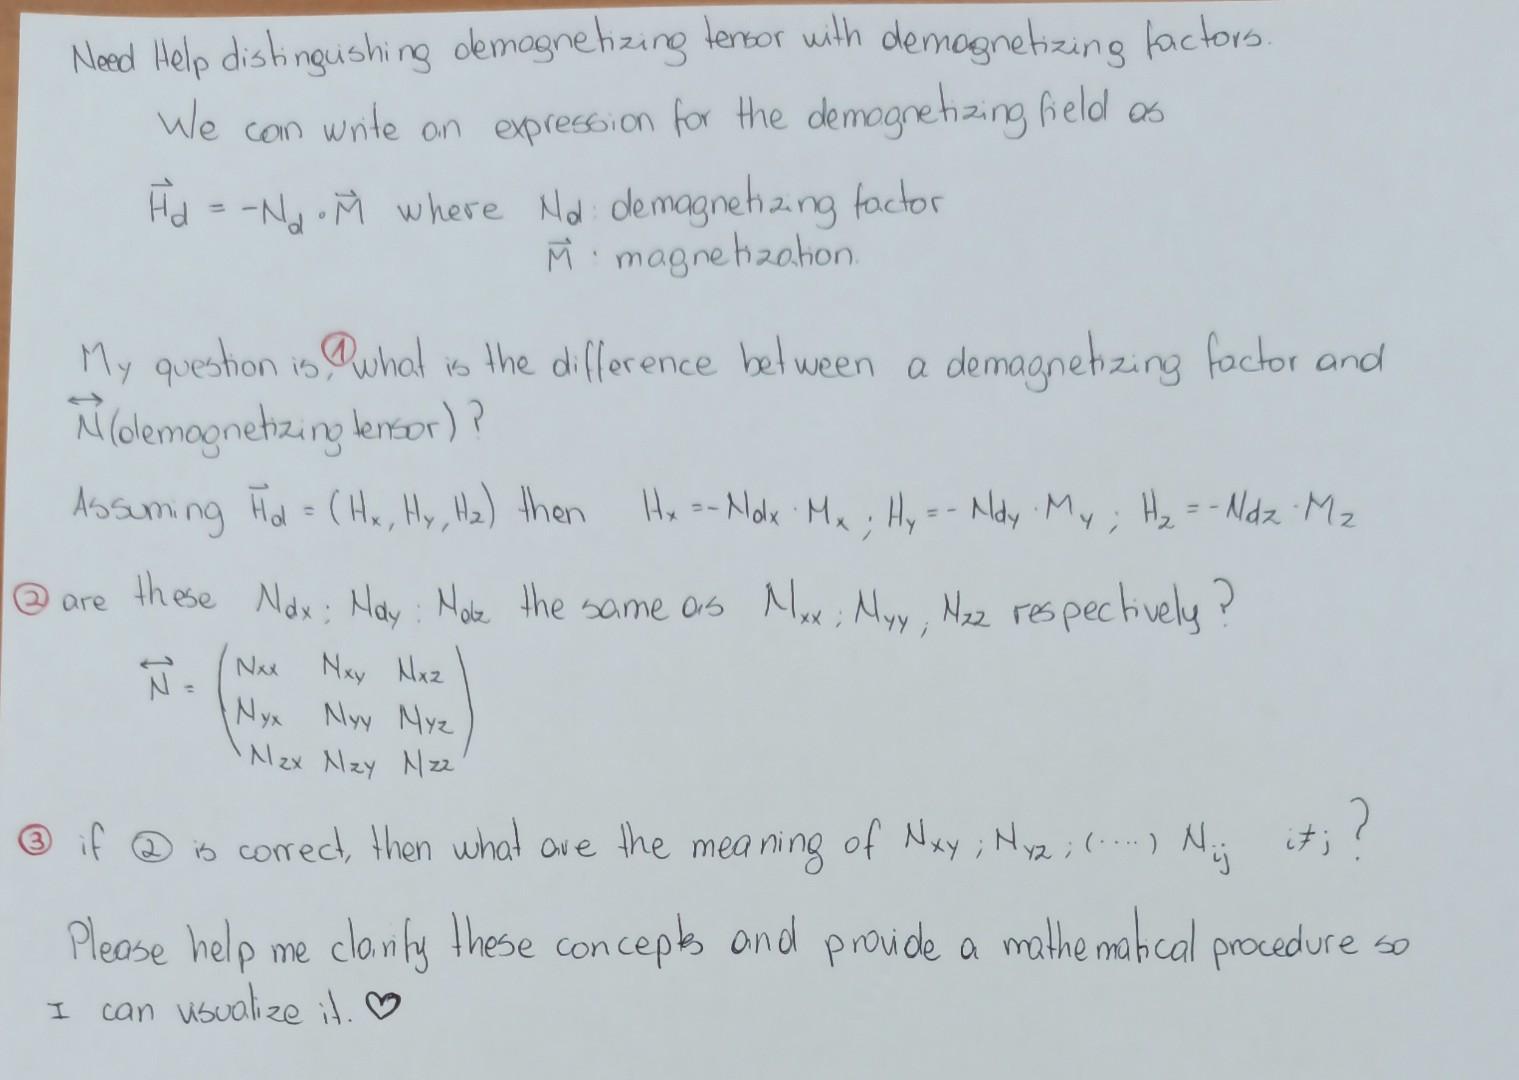 Need Help distinguishing demagnetizing tensor with demagnetizing factors.
We can write an expression for the demagnetizing field as
H⃗d = -Nd · M⃗ where Nd: demagnetizing factor
M⃗ : magnetization.
My question is, ① what is the difference between a demagnetizing factor and
N⃡ (demagnetizing tensor)?
Assuming H⃗d = (Hx, Hy, Hz) then Hx = -Ndx · Mx ; Hy = - Ndy · My ; Hz = -Ndz · Mz
② are these Ndx ; Ndy ; Ndz the same as Nxx ; Nyy ; Nzz respectively?
N⃡ = ( Nxx Nxy Nxz
Nyx Nyy Nyz
Nzx Nzy Nzz )
③ if ② is correct, then what are the meaning of Nxy ; Nyz ; (....) Nij i≠j ?
Please help me clarify these concepts and provide a mathematical procedure so
I can visualize it. ♡